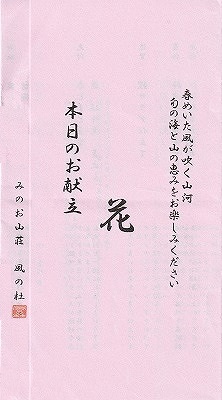 春めいた風が吹く山河
旬の海と山の恵みをお楽しみください
花
本日のお献立
みのお山荘 風の杜